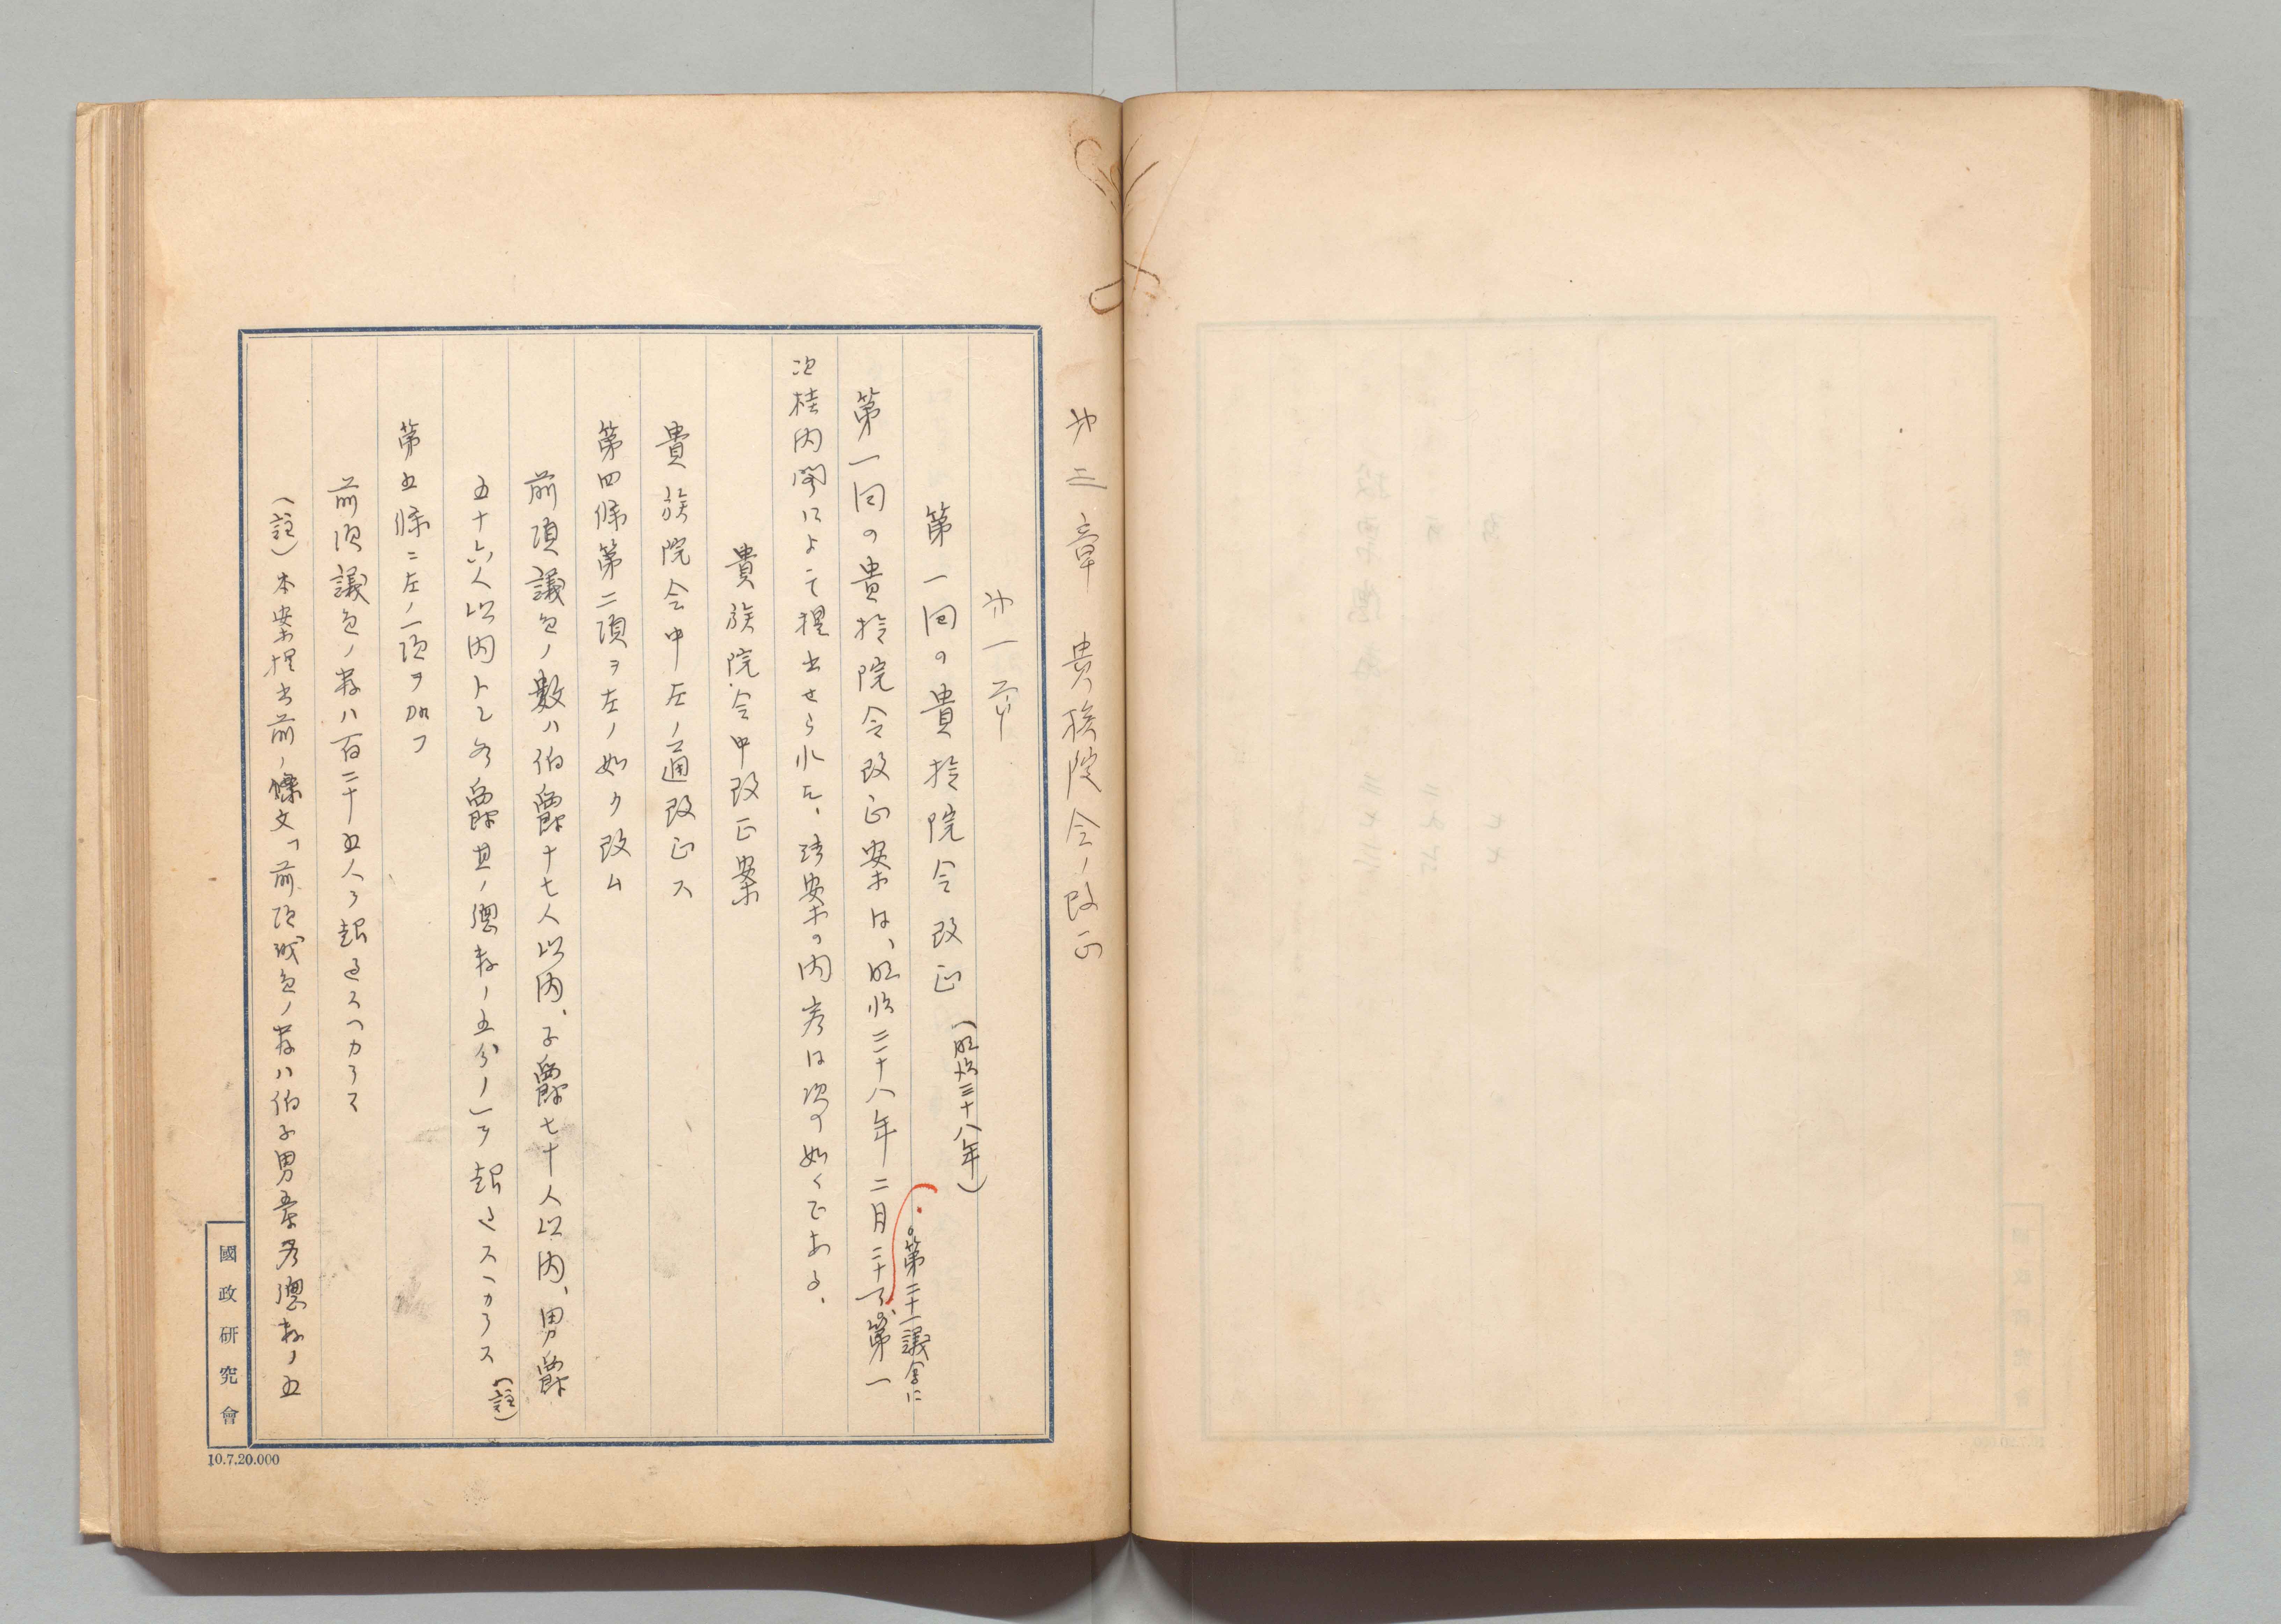 第三章　貴族院令ノ改正
第一节
第一回の貴族院令改正（明治三十八年）
第一回の貴族院令改正案は、明治三十八年二月二十一日、第二十一議会に第一
次桂内閣によつて提出せられた、該案の内容は次の如くである、
貴族院令中改正案
貴族院令中左ノ通改正ス
第四條第二項ヲ左ノ如ク改ム
前項議員ノ數ハ伯爵十七人以内、子爵七十人以内、男爵
五十六人以内トシ各爵其ノ總数ノ五分ノ一ヲ超過スヘカラス（註）
第五條ニ左ノ一項ヲ加フ
前項議員ノ数ハ百二十五人ヲ超過スヘカラス
（註）本案提出前ノ條文「前項議員ノ数ハ伯子男爵各總数ノ五
國政研究會
10.7.20.000